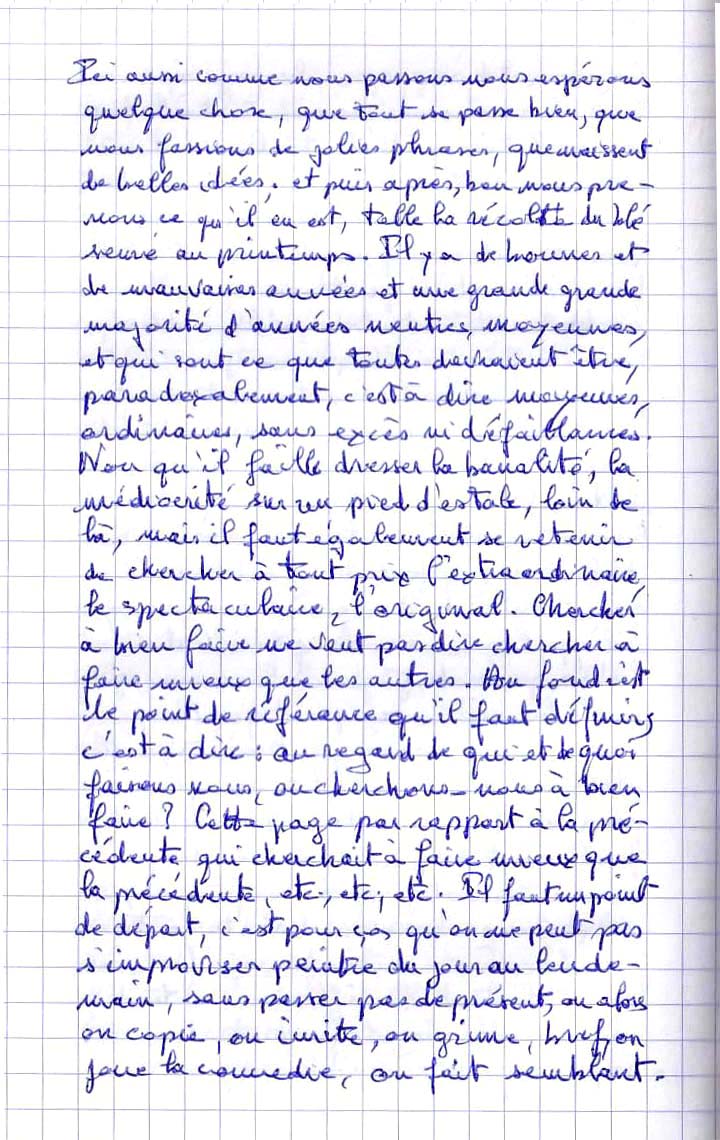 Ici aussi comme nous passons nous espérons
quelque chose, que tout se passe bien, que
nous fassions de jolies phrases, que naissent
de belles idées, et puis après, bon nous pre-
nons ce qu'il en est, telle la récolte du blé
semé au printemps. Il y a de bonnes et
de mauvaises années et une grande grande
majorité d'années neutres, moyennes,
et qui sont ce que toutes devraient être,
paradoxalement, c'est à dire moyennes,
ordinaires, sans excès ni défaillances.
Non qu'il faille dresser la banalité, la
médiocrité sur un pied d'estale, loin de
là, mais il faut également se retenir
de chercher à tout prix l'extraordinaire,
le spectaculaire, l'original. Chercher
à bien faire ne veut pas dire chercher à
faire mieux que les autres. Au fond c'est
le point de référence qu'il faut définir,
c'est à dire : au regard de qui et de quoi
faisons nous, ou cherchons-nous à bien
faire ? Cette page par rapport à la pré-
cédente qui cherchait à faire mieux que
la précédente, etc, etc, etc. Il faut un point
de départ, c'est pour ça qu'on ne peut pas
s'improviser peintre du jour au lende-
main, sans passer pas de présent, ou alors
on copie, on imite, on grime, bref, on
joue la comédie, on fait semblant.